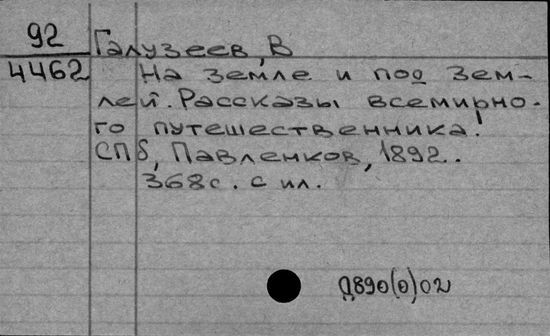 92 Галузеев, В
4462 На земле и под зем-
лей. Рассказы всемирно-
го путешественника!
СПб, Павленков, 1892..
368с. с ил.
Д890(0)02